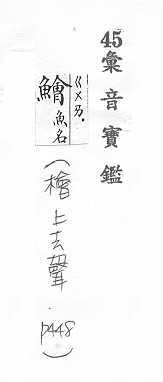 45彙音寶鑑
ㄍㄨㄞ.
鱠魚名
(檜上去聲.
p448)